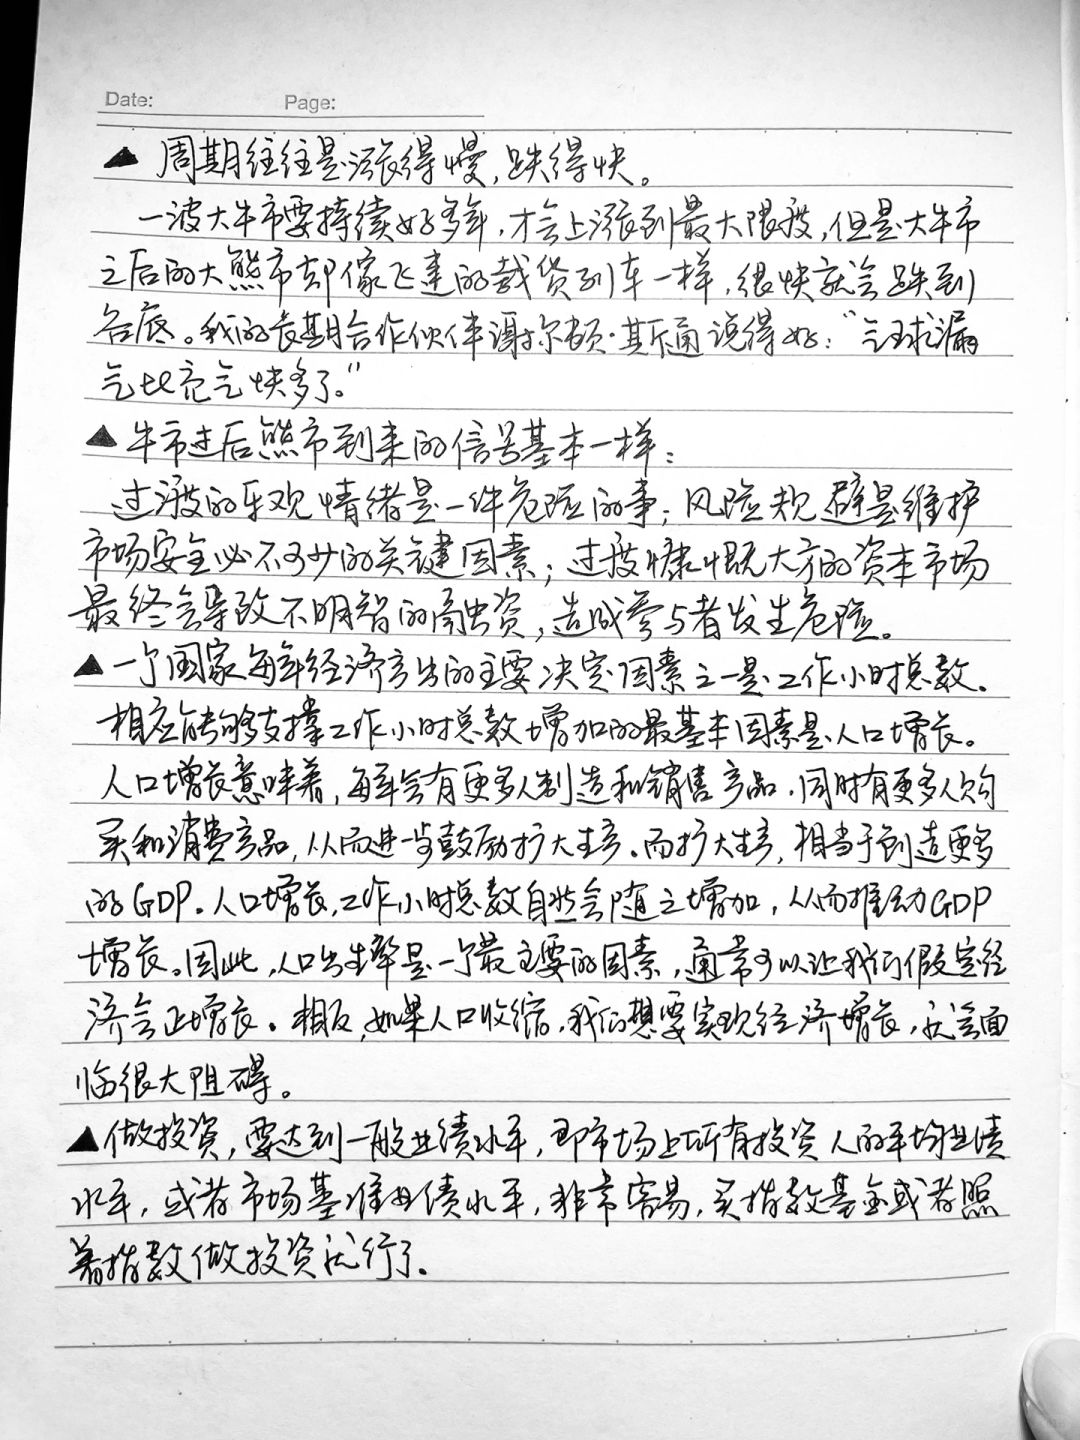 Date:
Page:
▲ 周期往往是涨得慢,跌得快。
一波大牛市要持续好多年,才会上涨到最大限度,但是大牛市
之后的大熊市却像飞速的载货列车一样,很快就会跌到
谷底。我的长期合作伙伴谢尔顿·斯通说得好:“气球漏
气比充气快多了。”
▲ 牛市过后熊市到来的信号基本一样:
过度的乐观情绪是一件危险的事;风险规避是维护
市场安全必不可少的关键因素;过度慷慨大方的资本市场
最终会导致不明智的融资,造成参与者发生危险。
▲一个国家每年经济产出的主要决定因素之一是工作小时总数。
相应能够支撑工作小时总数增加的最基本因素是人口增长。
人口增长意味着,每年会有更多人制造和销售产品,同时有更多人购
买和消费产品,从而进一步鼓励扩大生产。而扩大生产,相当于创造更多
的GDP。人口增长,工作小时总数自然会随之增加,从而推动GDP
增长。因此,人口出生率是一个最主要的因素,通常可以让我们假定经
济会正增长。相反,如果人口收缩,我们想要实现经济增长,就会面
临很大阻碍。
▲做投资,要达到一般业绩水平,即市场上所有投资人的平均业绩
水平,或者市场基准业绩水平,非常容易,买指数基金或者照
着指数做投资就行了。